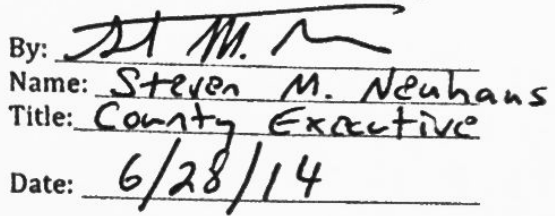 By:
Name: Steven M. Neuhaus
Title: County Executive
Date: 6/28/14